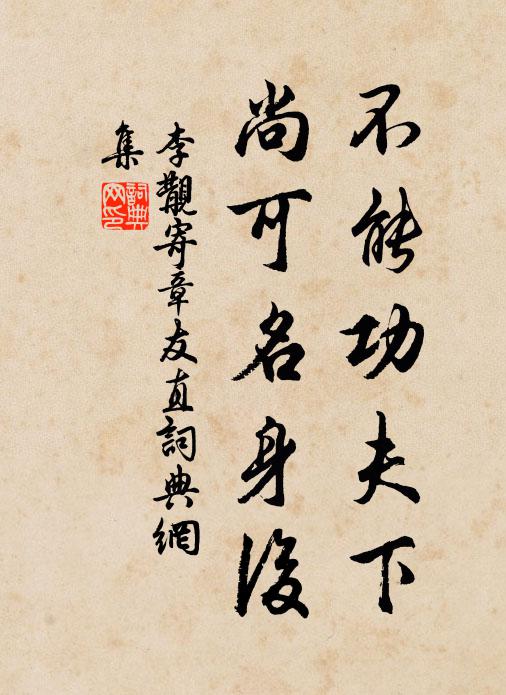 不能功夫下
尚可名身後
李覯寄章友直詞典網
集
詞典網印